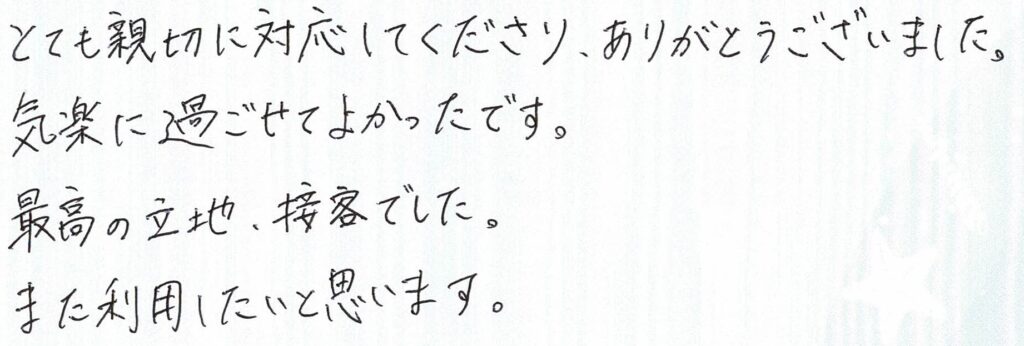 とても親切に対応してくださり、ありがとうございました。
気楽に過ごせてよかったです。
最高の立地、接客でした。
また利用したいと思います。